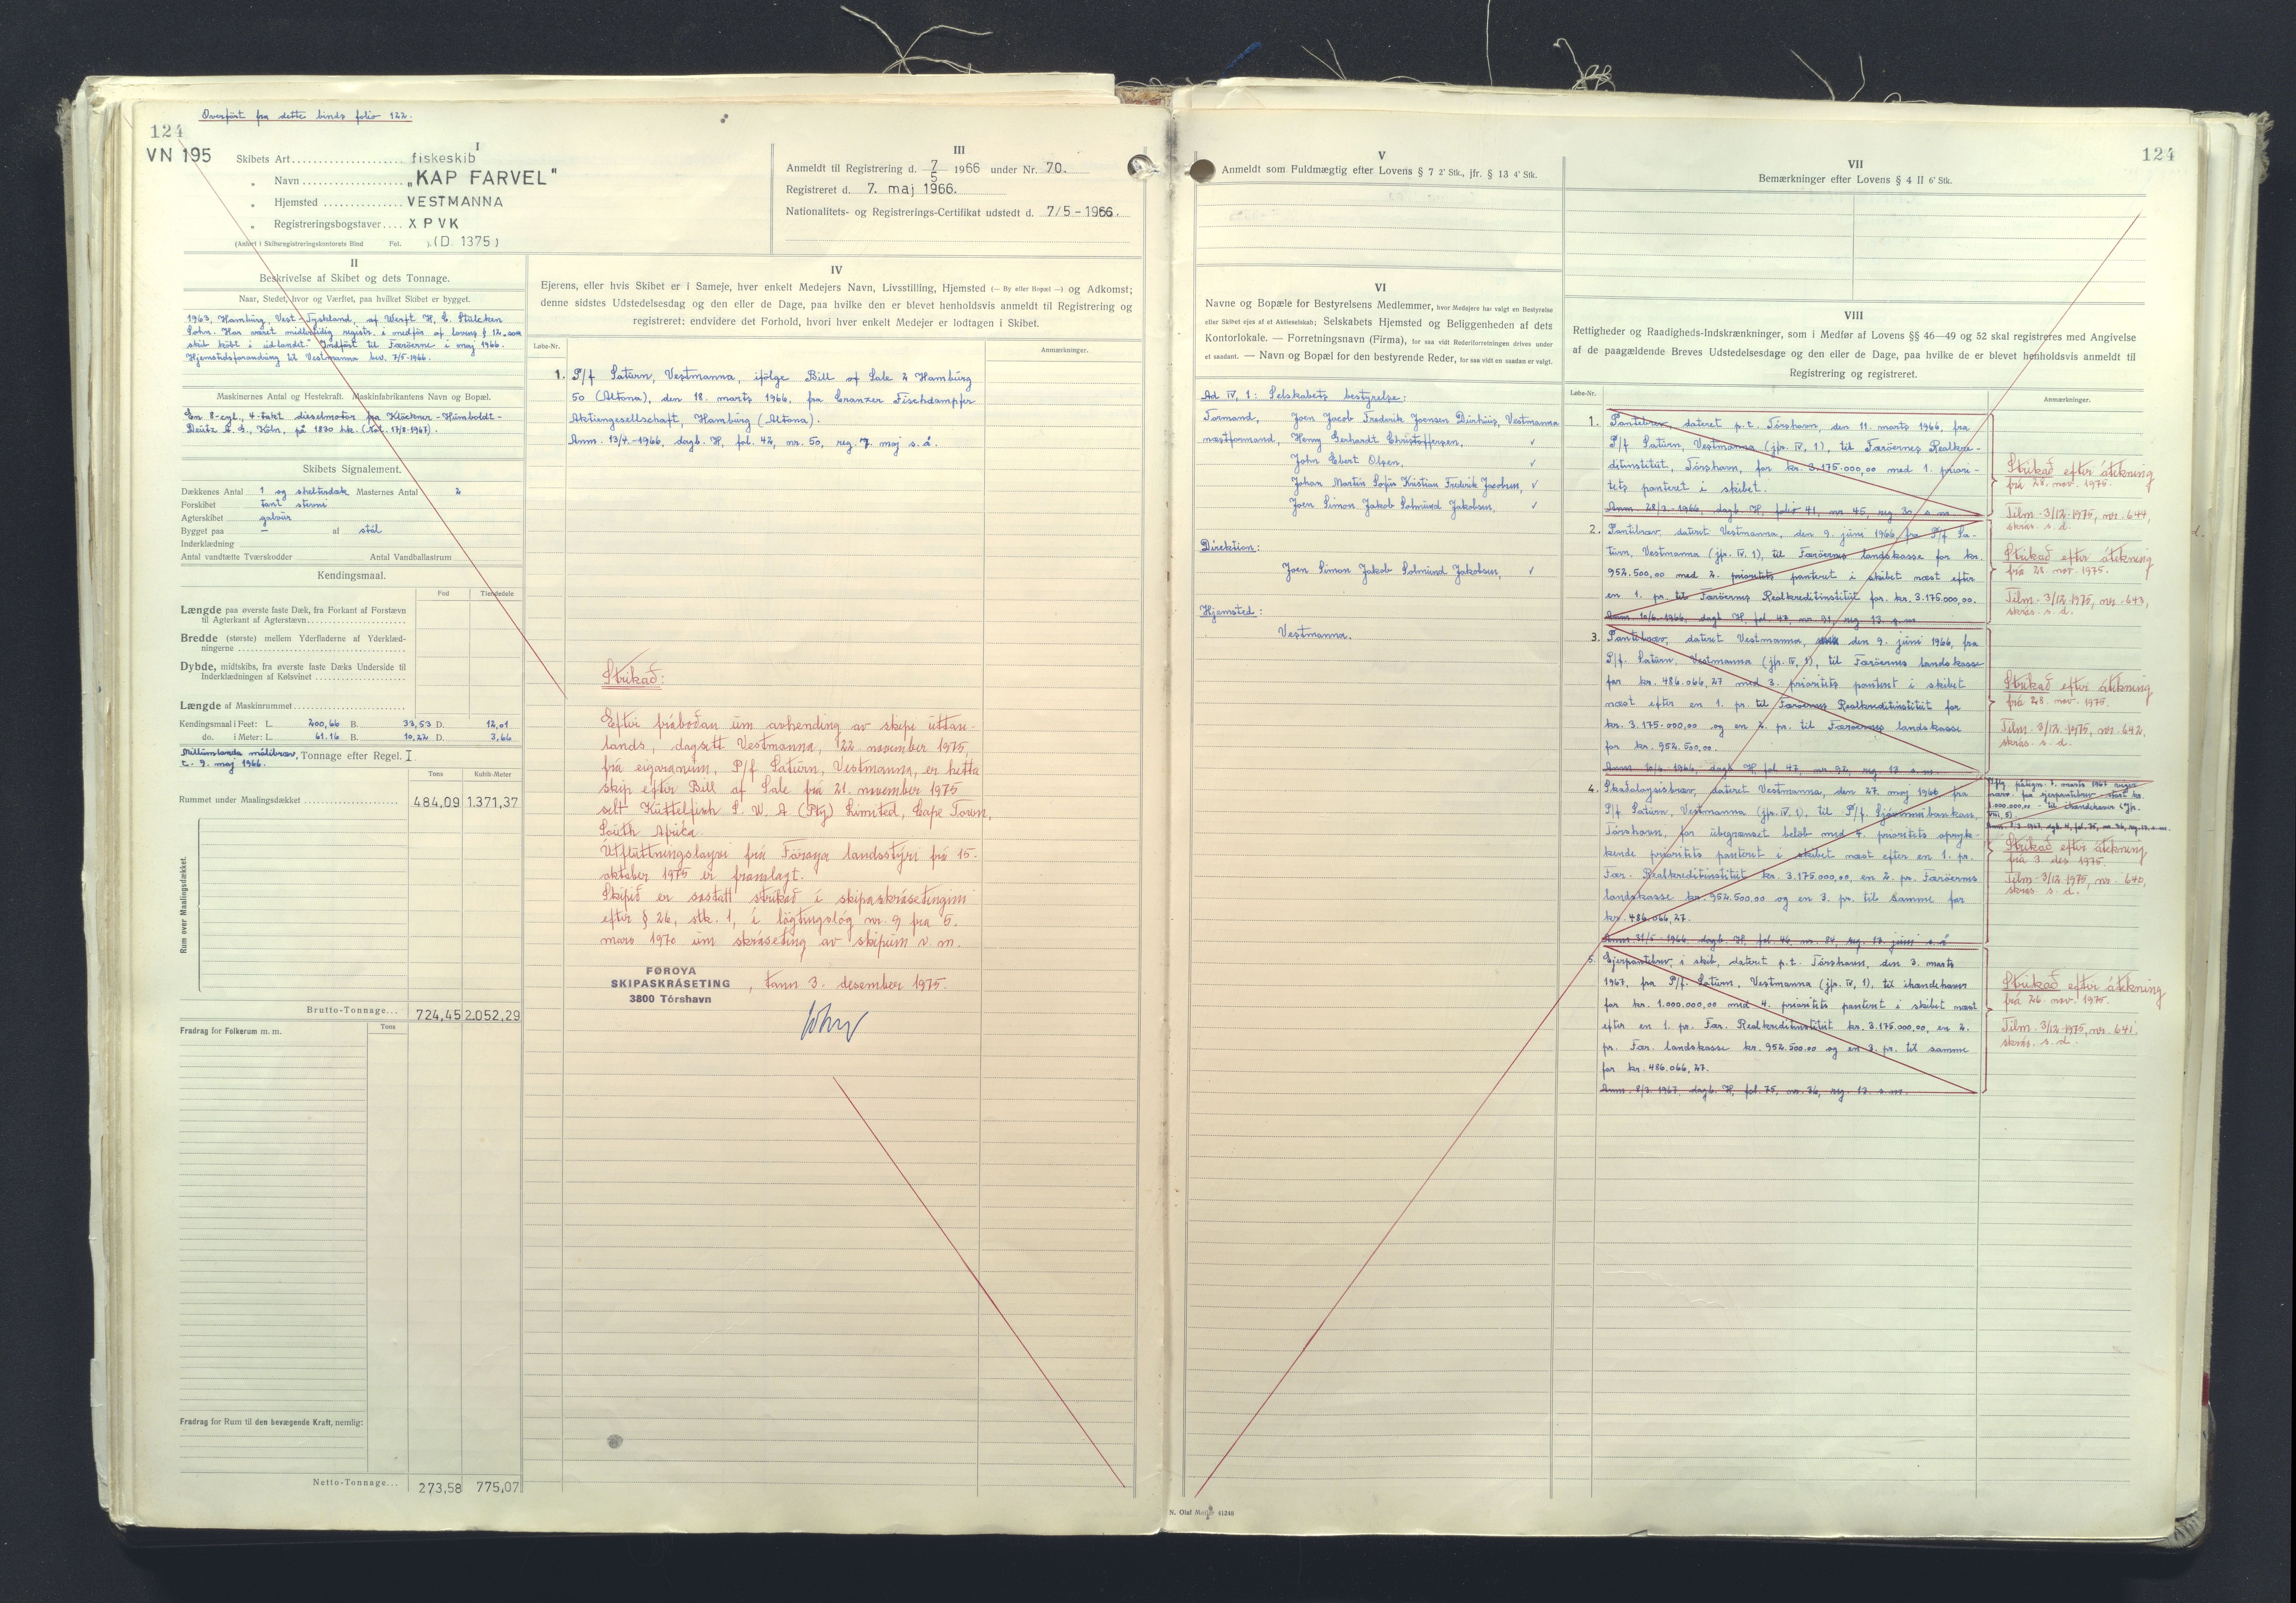 Overført fra dette binds folio 122.
124
VN 195
I
Skibets Art .................... fiskeskib
„ Navn .................... „KAP FARVEL"
„ Hjemsted .............. VESTMANNA
„ Registreringsbogstaver .... XPVK
(Anført i Skibsregistreringskontorets Bind Fol. ). (D. 1375)
III
Anmeldt til Registrering d. 7/5 1966 under Nr. 70.
Registreret d. 7. maj 1966.
Nationalitets- og Registrerings-Certifikat udstedt d. 7/5 - 1966.
II
Beskrivelse af Skibet og dets Tonnage.
Naar, Stedet, hvor og Værftet, paa hvilket Skibet er bygget.
1963, Hamburg, Vest-Tyskland, af Werft H. C. Stülcken
Sohn. Har været midlertidig registr. i medfør af lovens § 12 „som
skib købt i udlandet". Indført til Færøerne i maj 1966.
Hjemstedsforandring til Vestmanna bev. 7/5-1966.
Maskinernes Antal og Hestekraft. Maskinfabrikantens Navn og Bopæl.
En 8-cyl., 4-takt dieselmotor fra Klöckner-Humboldt-
Deutz A.G., Köln, på 1830 hk. (Not. 17/8-1967).
Skibets Signalement.
Dækkenes Antal 1 og shelterdæk Masternes Antal 2
Forskibet fant stevni
Agterskibet gavlur
Bygget paa — af stál
Inderklædning
Antal vandtætte Tværskodder Antal Vandballastrum
Kendingsmaal.
Fod Tiendedele
Længde paa øverste faste Dæk, fra Forkant af Forstævn
til Agterkant af Agterstævn
Bredde (største) mellem Yderfladerne af Yderklæd-
ningerne
Dybde, midtskibs, fra øverste faste Dæks Underside til
Inderklædningen af Kølsvinet
Længde af Maskinrummet
Kendingsmaal i Feet: L. 200,66 B. 33,53 D. 12,01
do. i Meter: L. 61.16 B. 10,22 D. 3,66
Millumlanda málibræv, Tonnage efter Regel. I
t. 9. maj 1966.
Tons Kubik-Meter
Rummet under Maalingsdækket 484,09 1.371,37
Rum over Maalingsdækket.
Brutto-Tonnage... 724,45 2.052,29
Fradrag for Folkerum m. m. Tons
Fradrag for Rum til den bevægende Kraft, nemlig:
Netto-Tonnage... 273,58 775,07
IV
Ejerens, eller hvis Skibet er i Sameje, hver enkelt Medejers Navn, Livsstilling, Hjemsted (— By eller Bopæl —) og Adkomst;
denne sidstes Udstedelsesdag og den eller de Dage, paa hvilke den er blevet henholdsvis anmeldt til Registrering og
registreret; endvidere det Forhold, hvori hver enkelt Medejer er lodtagen i Skibet.
Løbe-Nr. Anmærkninger.
1. P/f Saturn, Vestmanna, ifølge Bill of Sale 2 Hamburg
50 (Altona), den 18. marts 1966, fra Cranzer Fischdampfer
Aktiengesellschaft, Hamburg (Altona).
Anm. 13/4.-1966, dagb. H, fol. 42, nr. 50, reg. 7. maj s. å.
Strikað:
Eftir fráboðan um avhending av skipi uttan-
lands, dagsett Vestmanna, 22. november 1975,
frá eigaranum, P/f Saturn, Vestmanna, er hetta
skip eftir Bill of Sale frá 21. november 1975
selt Kuttelfish S. W. A (Pty) Limited, Cape Town,
South Afrika.
Útflutningsloyvi frá Føroya landsstýri frá 15.
oktober 1975 er framlagt.
Skipið er sostatt strikað í skipaskrásetingini
eftir § 26, stk. 1, í løgtingslóg nr. 9 frá 5.
mars 1970 um skráseting av skipum v. m.
FØROYA
SKIPASKRÁSETING
3800 Tórshavn
, tann 3. desember 1975.
V
Anmeldt som Fuldmægtig efter Lovens § 7 2' Stk., jfr. § 13 4' Stk.
VI
Navne og Bopæle for Bestyrelsens Medlemmer, hvor Medejere har valgt en Bestyrelse
eller Skibet ejes af et Aktieselskab; Selskabets Hjemsted og Beliggenheden af dets
Kontorlokale. — Forretningsnavn (Firma), for saa vidt Rederiforretningen drives under
et saadant. — Navn og Bopæl for den bestyrende Reder, for saa vidt en saadan er valgt.
Ad IV, 1: Selskabets bestyrelse:
Formand, Joen Jacob Frederik Joensen Dúrhuus, Vestmanna
næstformand, Henry Gerhardt Christoffersen, ✓
John Ebert Olsen, ✓
Johan Martin Sofus Kristian Frederik Jacobsen, ✓
Joen Simon Jakob Solmund Jakobsen, ✓
Direktion:
Joen Simon Jakob Solmund Jakobsen, ✓
Hjemsted:
Vestmanna.
VII
Bemærkninger efter Lovens § 4 II 6' Stk.
124
VIII
Rettigheder og Raadigheds-Indskrænkninger, som i Medfør af Lovens §§ 46—49 og 52 skal registreres med Angivelse
af de paagældende Breves Udstedelsesdage og den eller de Dage, paa hvilke de er blevet henholdsvis anmeldt til
Registrering og registreret.
Løbe-Nr. Anmærkninger.
1. Pantebrev, dateret p. t. Tórshavn, den 11. marts 1966, fra
P/f Saturn, Vestmanna (jfr. IV, 1), til Færøernes Realkre-
ditinstitut, Tórshavn, for kr. 3.175.000,00 med 1. priori-
tets panteret i skibet.
Anm. 28/3.-1966, dagb. H, folio 41, nr. 45, reg. 30. s. m.
Strikað eftir átekning
frá 28. nov. 1975.
Tilm. 3/12-1975, nr. 644,
skrás. s. d.
2. Pantebrev, dateret Vestmanna, den 9. juni 1966, fra P/f Sa-
turn, Vestmanna (jfr. IV, 1), til Færøernes landskasse for kr.
952.500,00 med 2. prioritets panteret i skibet næst efter
en 1. pr. til Færøernes Realkreditinstitut for kr. 3.175.000,00.
Anm. 10/6.-1966, dagb. H, fol. 47, nr. 91, reg. 13. s. m.
Strikað eftir átekning
frá 28. nov. 1975.
Tilm. 3/12-1975, nr. 643,
skrás. s. d.
3. Pantebrev, dateret Vestmanna, den 9. juni 1966, fra
P/f. Saturn, Vestmanna (jfr. IV, 1), til Færøernes landskasse
for kr. 486.066,27 med 3. prioritets panteret i skibet
næst efter en 1. pr. til Færøernes Realkreditinstitut for
kr. 3.175.000,00 og en 2. pr. til Færøernes landskasse
for kr. 952.500,00.
Anm. 10/6.-1966, dagb. H, fol. 47, nr. 92, reg. 13. s. m.
Strikað eftir átekning
frá 28. nov. 1975.
Tilm. 3/12-1975, nr. 642,
skrás. s. d.
4. Skadaloysisbræv, dateret Vestmanna, den 27. maj 1966 fra
P/f. Saturn, Vestmanna (jfr. IV, 1), til P/f. Sjóvinnubankan,
Tórshavn, for ubegrænset beløb med 4. prioritets opryk-
kende prioritets panteret i skibet næst efter en 1. pr.
Fær. Realkreditinstitut kr. 3.175.000,00, en 2. pr. Færøernes
landskasse kr. 952.500,00 og en 3. pr. til samme for
kr. 486.066,27.
Anm. 31/5-1966, dagb. H, fol. 46, nr. 84, reg. 13. juni s. å
1.000.000,00 - til ihændehaver (jfr.
VIII, 5).
Strikað eftir átekning
frá 3. des 1975.
Tilm. 3/12-1975, nr. 640,
skrás. s. d.
5. Ejerpantebrev, i skib, dateret p. t. Tórshavn, den 3. marts
1967, fra P/f. Saturn, Vestmanna (jfr. IV, 1), til ihændehaver
for kr. 1.000.000,00 med 4. prioritets panteret i skibet næst
efter en 1. pr. Fær. Realkreditinstitut kr. 3.175.000,00, en 2.
pr. Fær. landskasse kr. 952.500,00 og en 3. pr. til samme
for kr. 486.066,27.
Anm. 8/3. 1967, dagb. H, fol. 75, nr. 36, reg. 13. s. m.
Strikað eftir átekning
frá 26. nov. 1975.
Tilm. 3/12-1975, nr. 641,
skrás. s. d.
N. Olaf Møller 41248